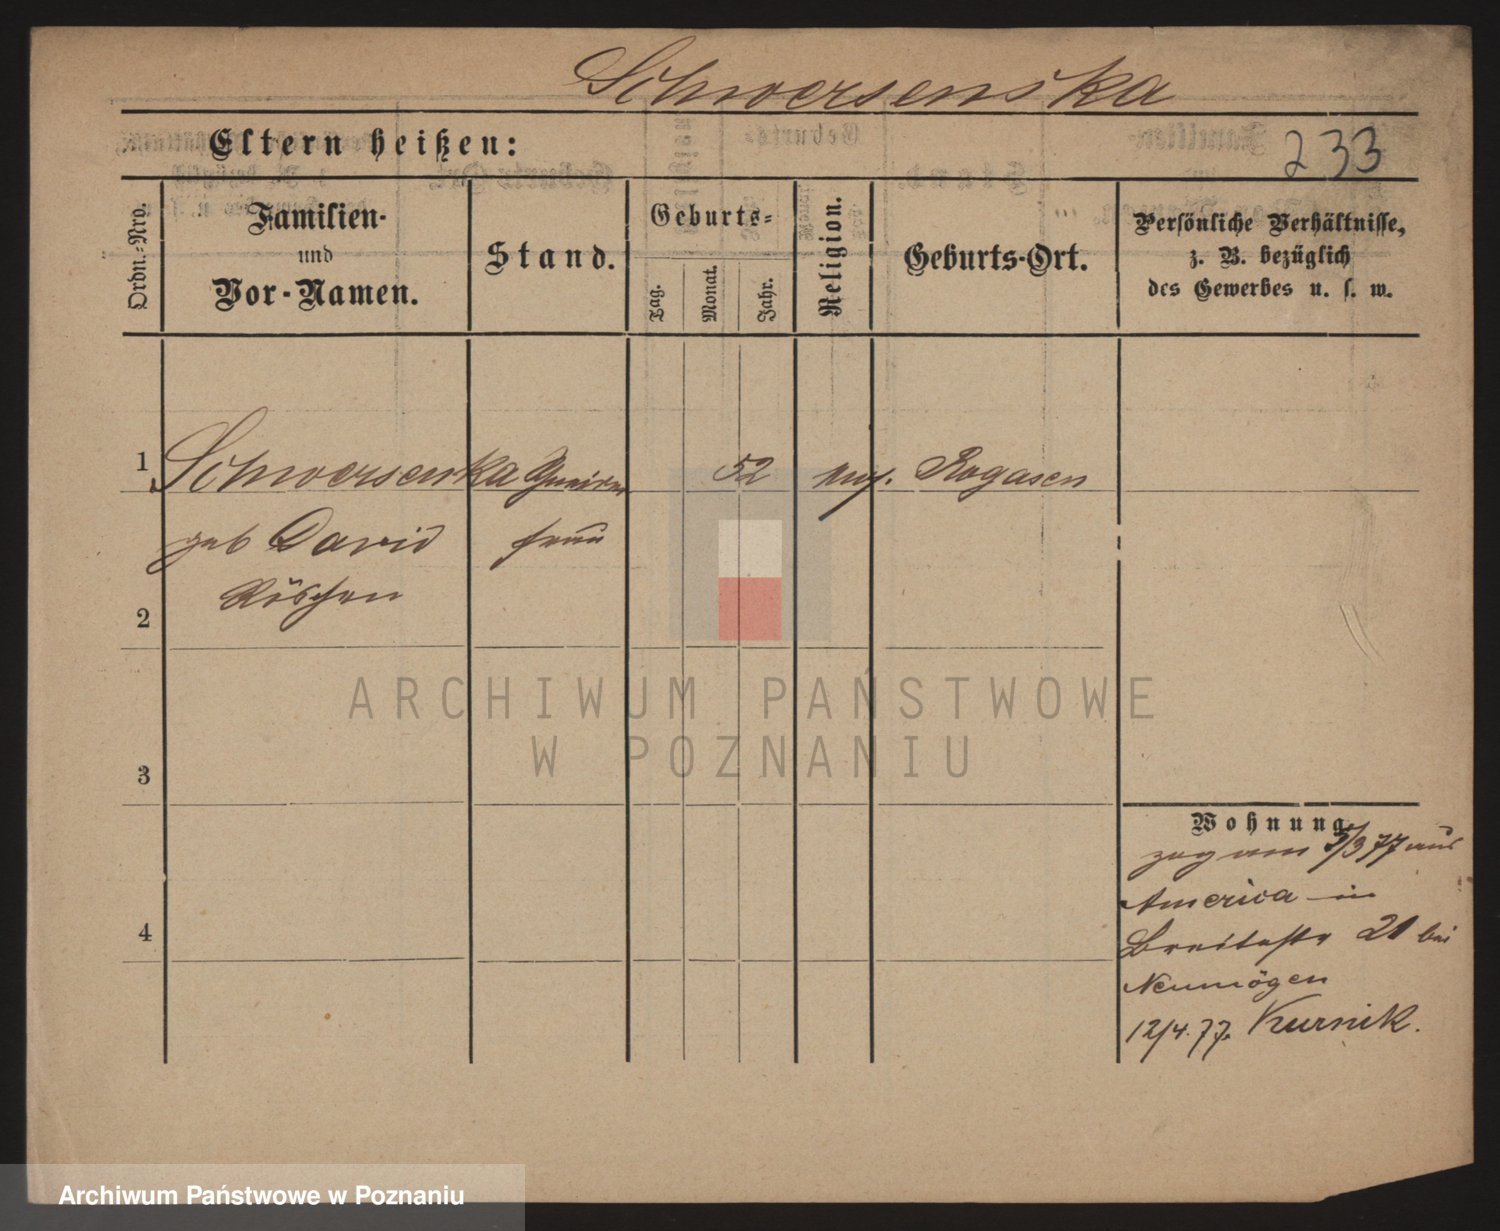 Schwersenska
Eltern heißen:
233
Ordn.-Nro.
Familien-
und
Vor-Namen.
Stand.
Geburts-
Tag.
Monat.
Jahr.
Religion.
Geburts-Ort.
Persönliche Verhältnisse,
z. B. bezüglich
des Gewerbes u. s. w.
1
Schwersenska
52
mos.
Rogasen
geb David
frau
Röschen
2
ARCHIWUM PAŃSTWOWE
W POZNANIU
3
Wohnung
zog am 5/3 77 aus
America in
4
Breitestr 21 bei
Neumögen
12/4. 77. Kurnik.
Archiwum Państwowe w Poznaniu